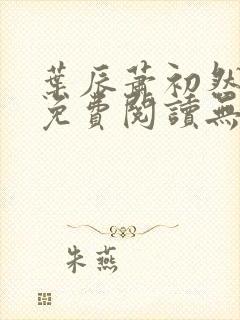 葉辰蕭初然
免費閱讀無
朱燕